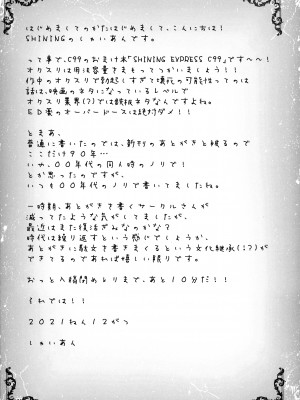 はじめましてのかたはじめまして、こんにちは!
SHININGのしゃいあんです。
って事で、C99のおまけ本「SHINING EXPRESS C99」です〜〜!
オクスリは用法容量きまもってつかいましょう!!
作中のオクスリで勃起しすぎて壊死の可能性ってのは
話は、映画のネタになっているレベルで
オクスリ業界(?)では鉄板ネタなんですよね。
ED薬のオーバードースは絶対ダメ!!
とまあ、
普通に書いたのでは、新刊のあとがきと被るので
ここだけ90年…
いや、00年代の同人時のノリで!
とか思ったのですが、
いつも00年代のノリで書いてましたね。
一時期、あとがきを書くサークルさんが
減ってたような気がしてましたが、
最近はまた復活ぎみなのかな?
時代は繰り返すという感じでしょうか、
あとがきに駄文を書きまくるという文化継承(!?)が
できてるのであれば嬉しい限りです。
おっと入稿〆めとりまで、あと10分だ!!
それでは!!
2021ねん12がつ
しゃいあん